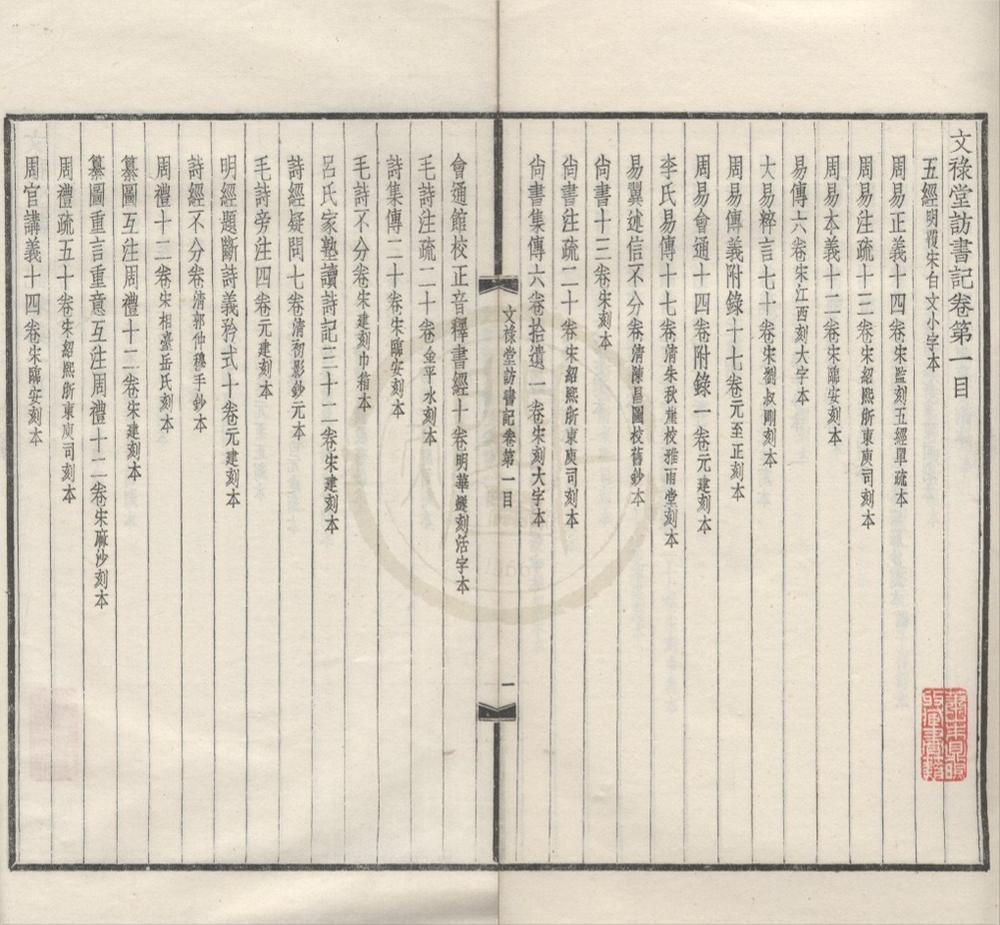 文祿堂訪書記卷第一目
五經明覆宋白文小字本
周易正義十四卷宋監刻五經單疏本
周易注疏十三卷宋紹熙浙東庾司刻本
周易本義十二卷宋臨安刻本
易傳六卷宋江西刻大字本
大易粹言七十卷宋劉叔剛刻本
周易傳義附錄十七卷元至正刻本
周易會通十四卷附錄一卷元建刻本
李氏易傳十七卷清朱秋崖校雅雨堂刻本
易翼述信不分卷清陳昌圖校舊鈔本
尙書十三卷宋刻本
尙書注疏二十卷宋紹熙浙東庾司刻本
尙書集傳六卷拾遺一卷宋刻大字本
文祿堂訪書記卷第一目
一
會通館校正音釋書經十卷明華燧刻活字本
毛詩注疏二十卷金平水刻本
詩集傳二十卷宋臨安刻本
毛詩不分卷宋建刻巾箱本
呂氏家塾讀詩記三十二卷宋建刻本
詩經疑問七卷清初影鈔元本
毛詩旁注四卷元建刻本
明經題斷詩義矜式十卷元建刻本
詩經不分卷清郭仲穆手鈔本
周禮十二卷宋相臺岳氏刻本
纂圖互注周禮十二卷宋建刻本
纂圖重言重意互注周禮十二卷宋麻沙刻本
周禮疏五十卷宋紹熙浙東庾司刻本
周官講義十四卷宋臨安刻本